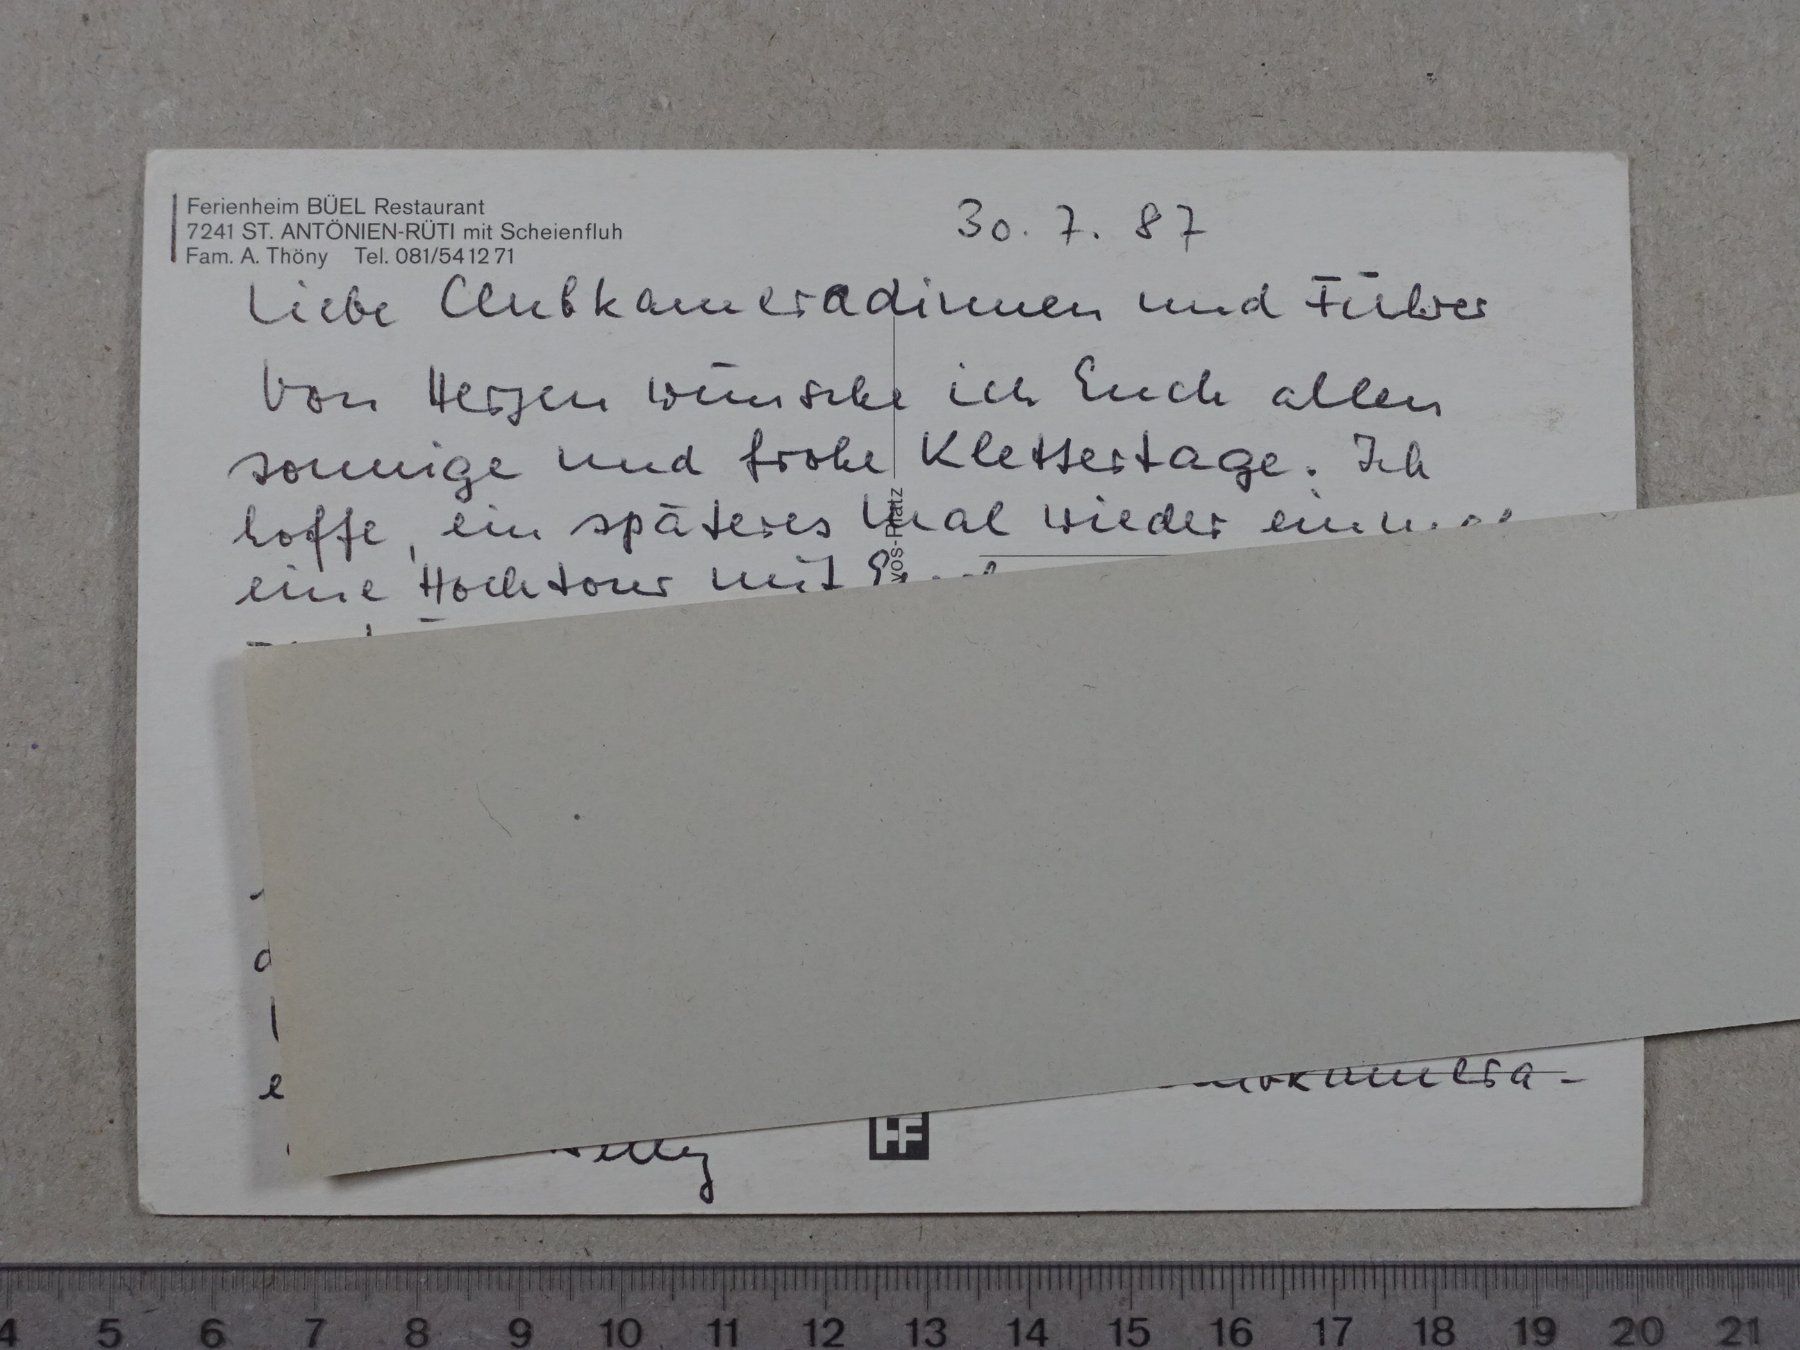 Ferienheim BÜEL Restaurant
7241 ST. ANTÖNIEN-RÜTI mit Scheienfluh
Fam. A. Thöny Tel. 081/54 12 71
30. 7. 87
Liebe Clubkameradinnen und Führer
Von Herzen wünsche ich Euch allen
sonnige und frohe Klettertage. Ich
hoffe, ein späteres Mal wieder
eine Hochtour mit
HF
4 5 6 7 8 9 10 11 12 13 14 15 16 17 18 19 20 21